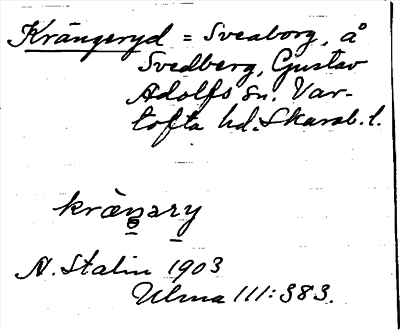 Krängeryd = Sveaborg, å
Svedberg, Gustav
Adolfs sn. Var-
tofta hd. Skarab. l.
kræŋəry
N. Stalin 1903
Ulma 111:383.